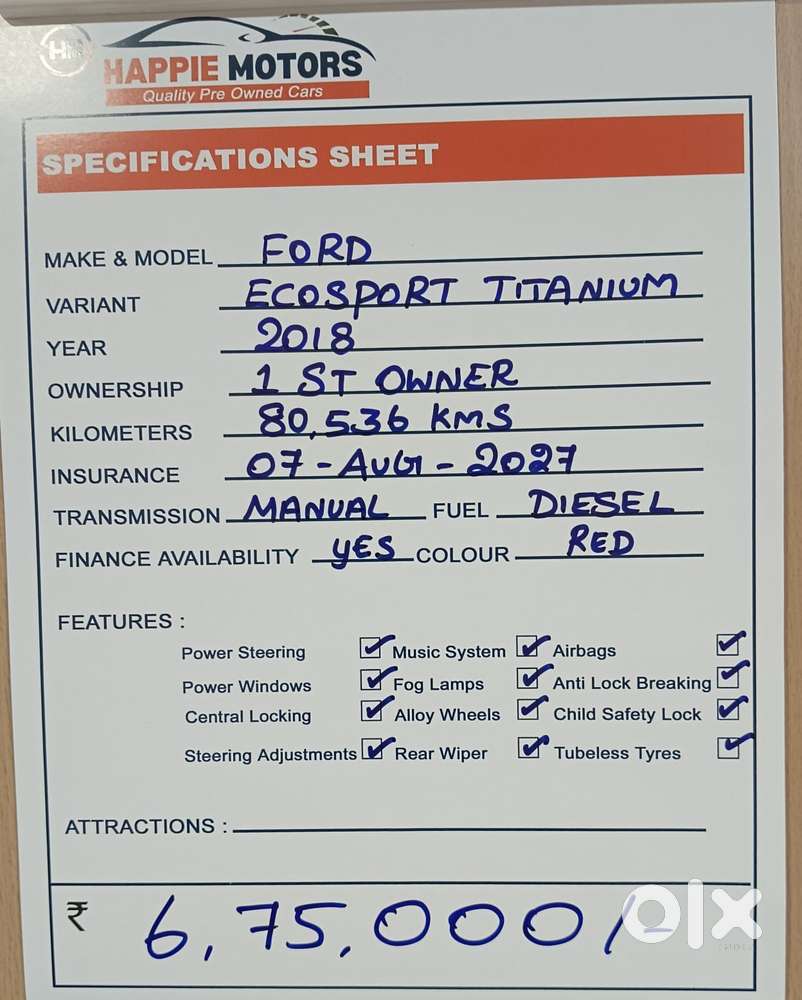 HM
HAPPIE MOTORS
Quality Pre Owned Cars
SPECIFICATIONS SHEET
MAKE & MODEL FORD
VARIANT ECOSPORT TITANIUM
YEAR 2018
OWNERSHIP 1 ST OWNER
KILOMETERS 80,536 KMS
INSURANCE 07-AUG-2027
TRANSMISSION MANUAL FUEL DIESEL
FINANCE AVAILABILITY YES COLOUR RED
FEATURES :
Power Steering Music System Airbags
Power Windows Fog Lamps Anti Lock Breaking
Central Locking Alloy Wheels Child Safety Lock
Steering Adjustments Rear Wiper Tubeless Tyres
ATTRACTIONS :
₹ 6,75,000/-
olx